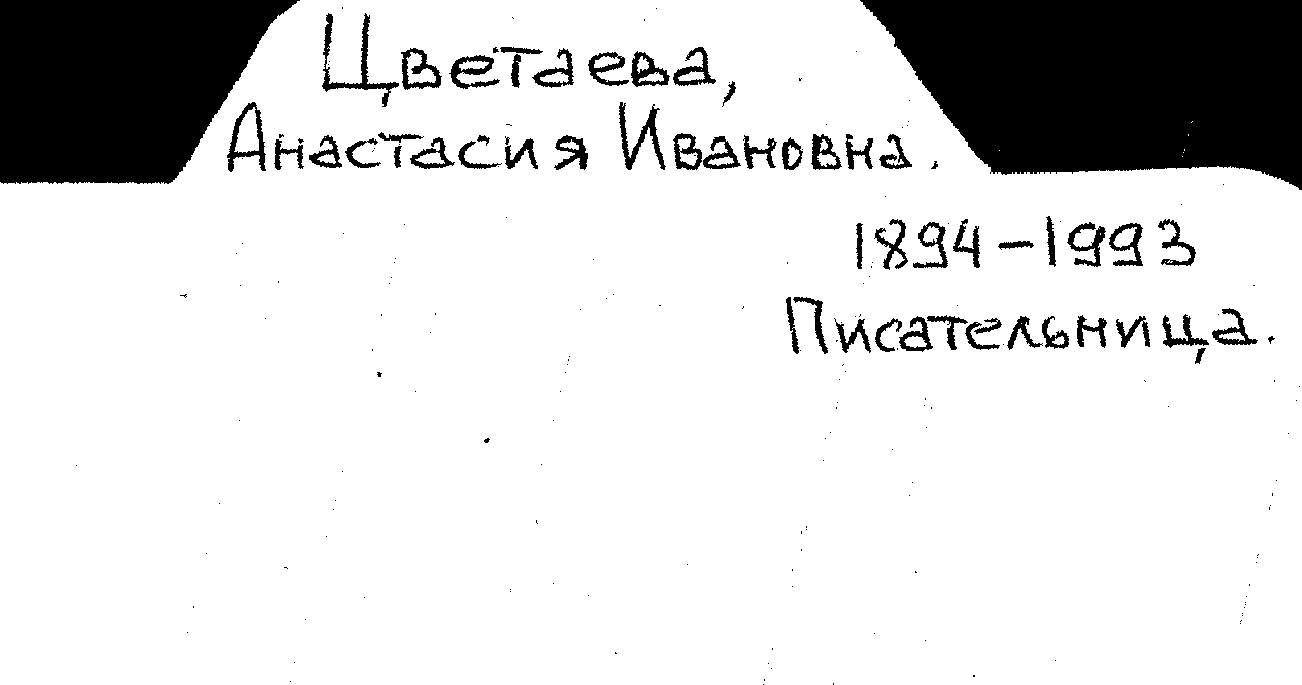 Цветаева,
Анастасия Ивановна.
1894-1993
Писательница.